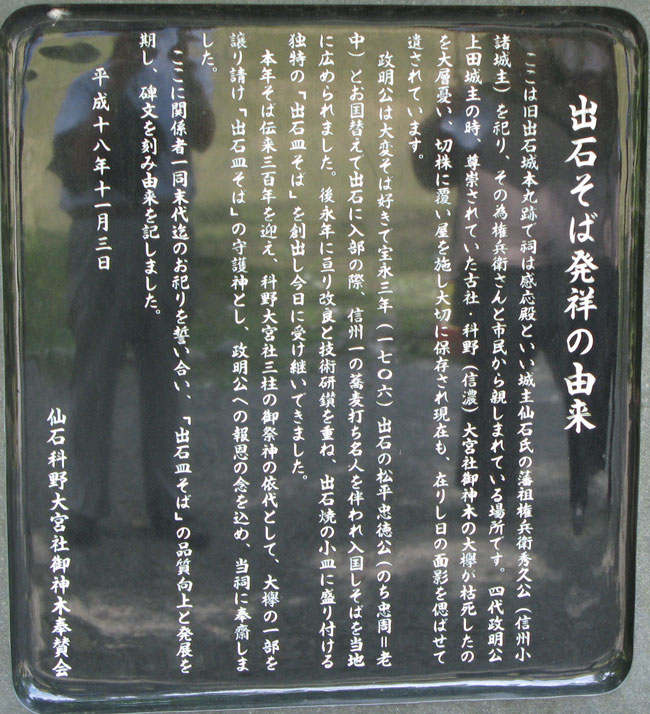 出石そば発祥の由来
ここは旧出石城本丸跡で祠は感応殿といい城主仙石氏の藩祖権兵衛秀久公(信州小
諸城主)を祀り、その為権兵衛さんと市民から親しまれている場所です。四代政明公
上田城主の時、尊崇されていた古社・科野(信濃)大宮社御神木の大欅が枯死したの
を大層憂い、切株に覆い屋を施し大切に保存され現在も、在りし日の面影を偲ばせて
遺されています。
政明公は大変そば好きで宝永三年(一七〇六)出石の松平忠徳公(のち忠周=老
中)とお国替えで出石に入部の際、信州一の蕎麦打ち名人を伴われ入国しそばを当地
に広められました。後永年に亘り改良と技術研鑚を重ね、出石焼の小皿に盛り付ける
独特の「出石皿そば」を創出し今日に受け継いできました。
本年そば伝来三百年を迎え、科野大宮社三柱の御祭神の依代として、大欅の一部を
譲り請け「出石皿そば」の守護神とし、政明公への報恩の念を込め、当祠に奉齋しま
した。
ここに関係者一同末代迄のお祀りを誓い合い、「出石皿そば」の品質向上と発展を
期し、碑文を刻み由来を記しました。
平成十八年十一月三日
仙石科野大宮社御神木奉賛会